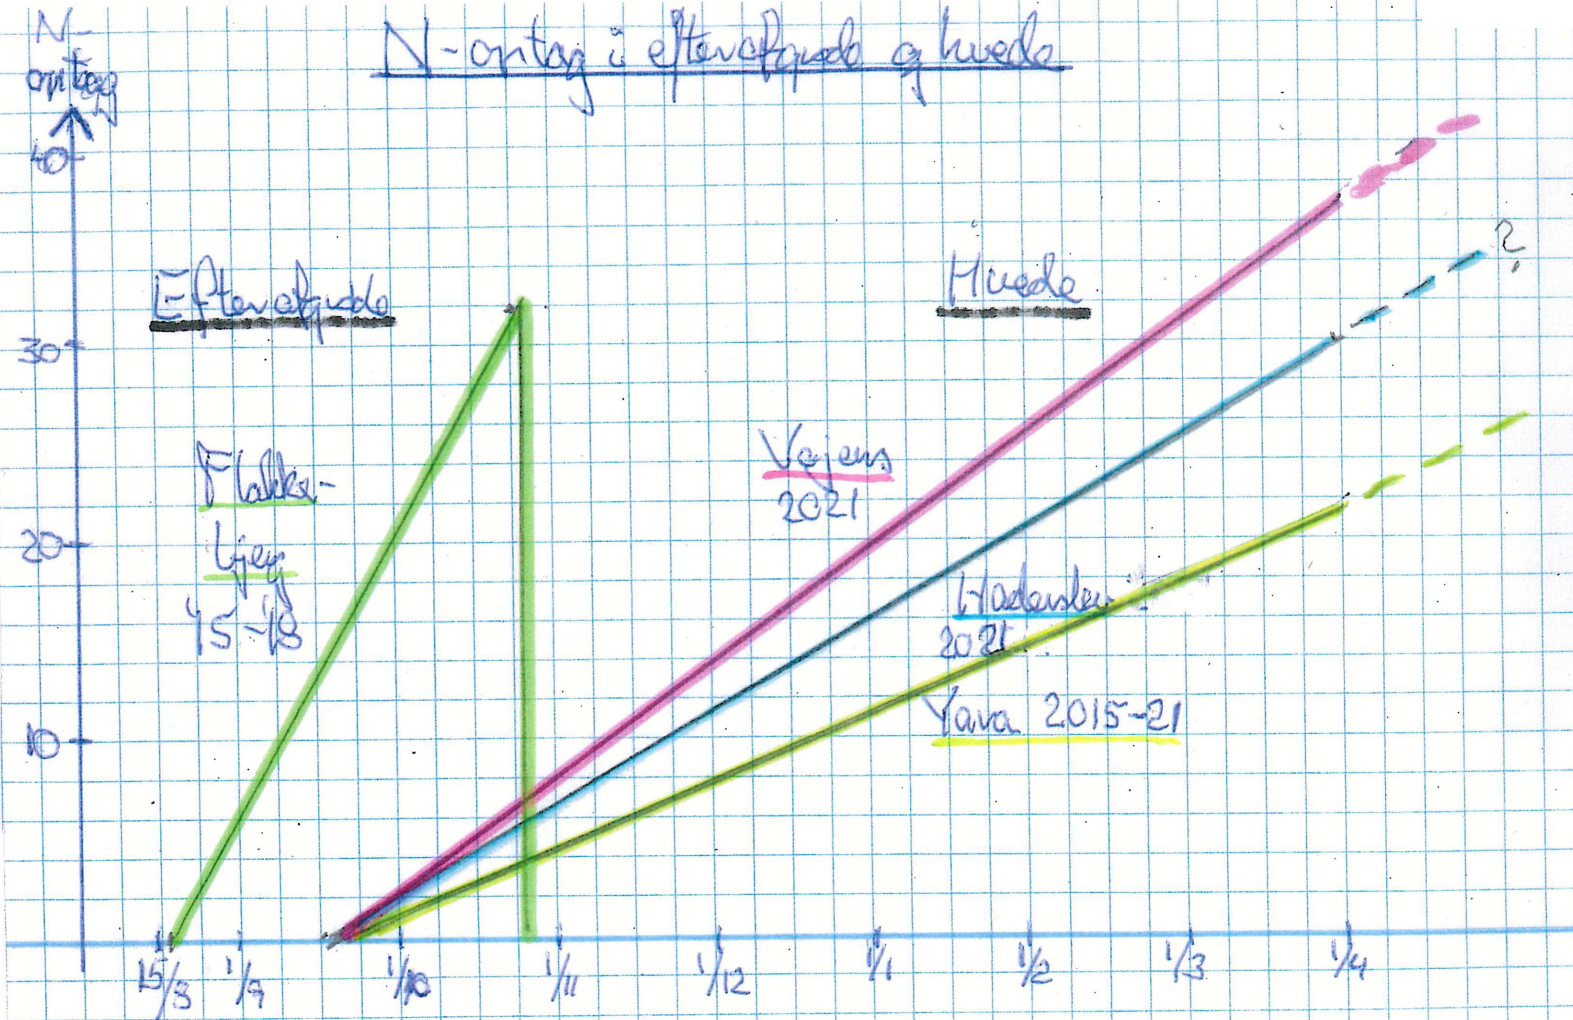 N-optag i efterafgrøde og hvede
N-
optag
40
30
20
10
Efterafgrøde
Hvede
?
Flakke-
bjerg
'15-'18
Vojens
2021
Haderslev
2021
Yara 2015-21
15/8 1/9 1/10 1/11 1/12 1/1 1/2 1/3 1/4